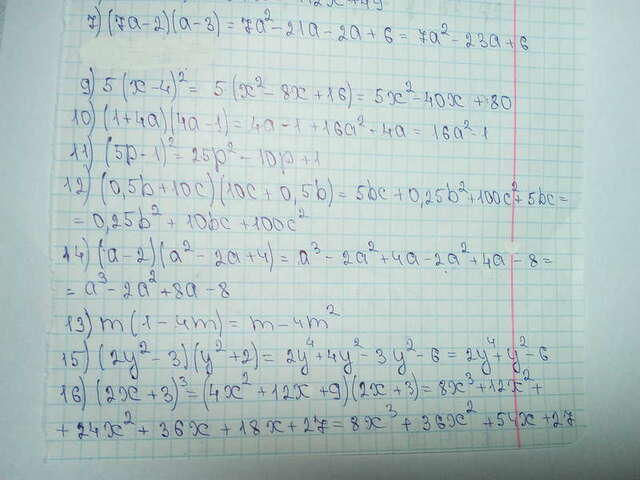 7) (7a-2)(a-3) = 7a²-21a-2a+6 = 7a²-23a+6
9) 5(x-4)² = 5(x²-8x+16) = 5x²-40x+80
10) (1+4a)(4a-1) = 4a-1+16a²-4a = 16a²-1
11) (5p-1)² = 25p²-10p+1
12) (0,5b+10c)(10c+0,5b) = 5bc+0,25b²+100c²+5bc =
= 0,25b²+10bc+100c²
14) (a-2)(a²-2a+4) = a³-2a²+4a-2a²+4a-8 =
= a³-2a²+8a-8
13) m(1-4m) = m-4m²
15) (2y²-3)(y²+2) = 2y⁴+4y²-3y²-6 = 2y⁴+y²-6
16) (2x+3)³ = (4x²+12x+9)(2x+3) = 8x³+12x²+
+24x²+36x+18x+27 = 8x³+36x²+54x+27